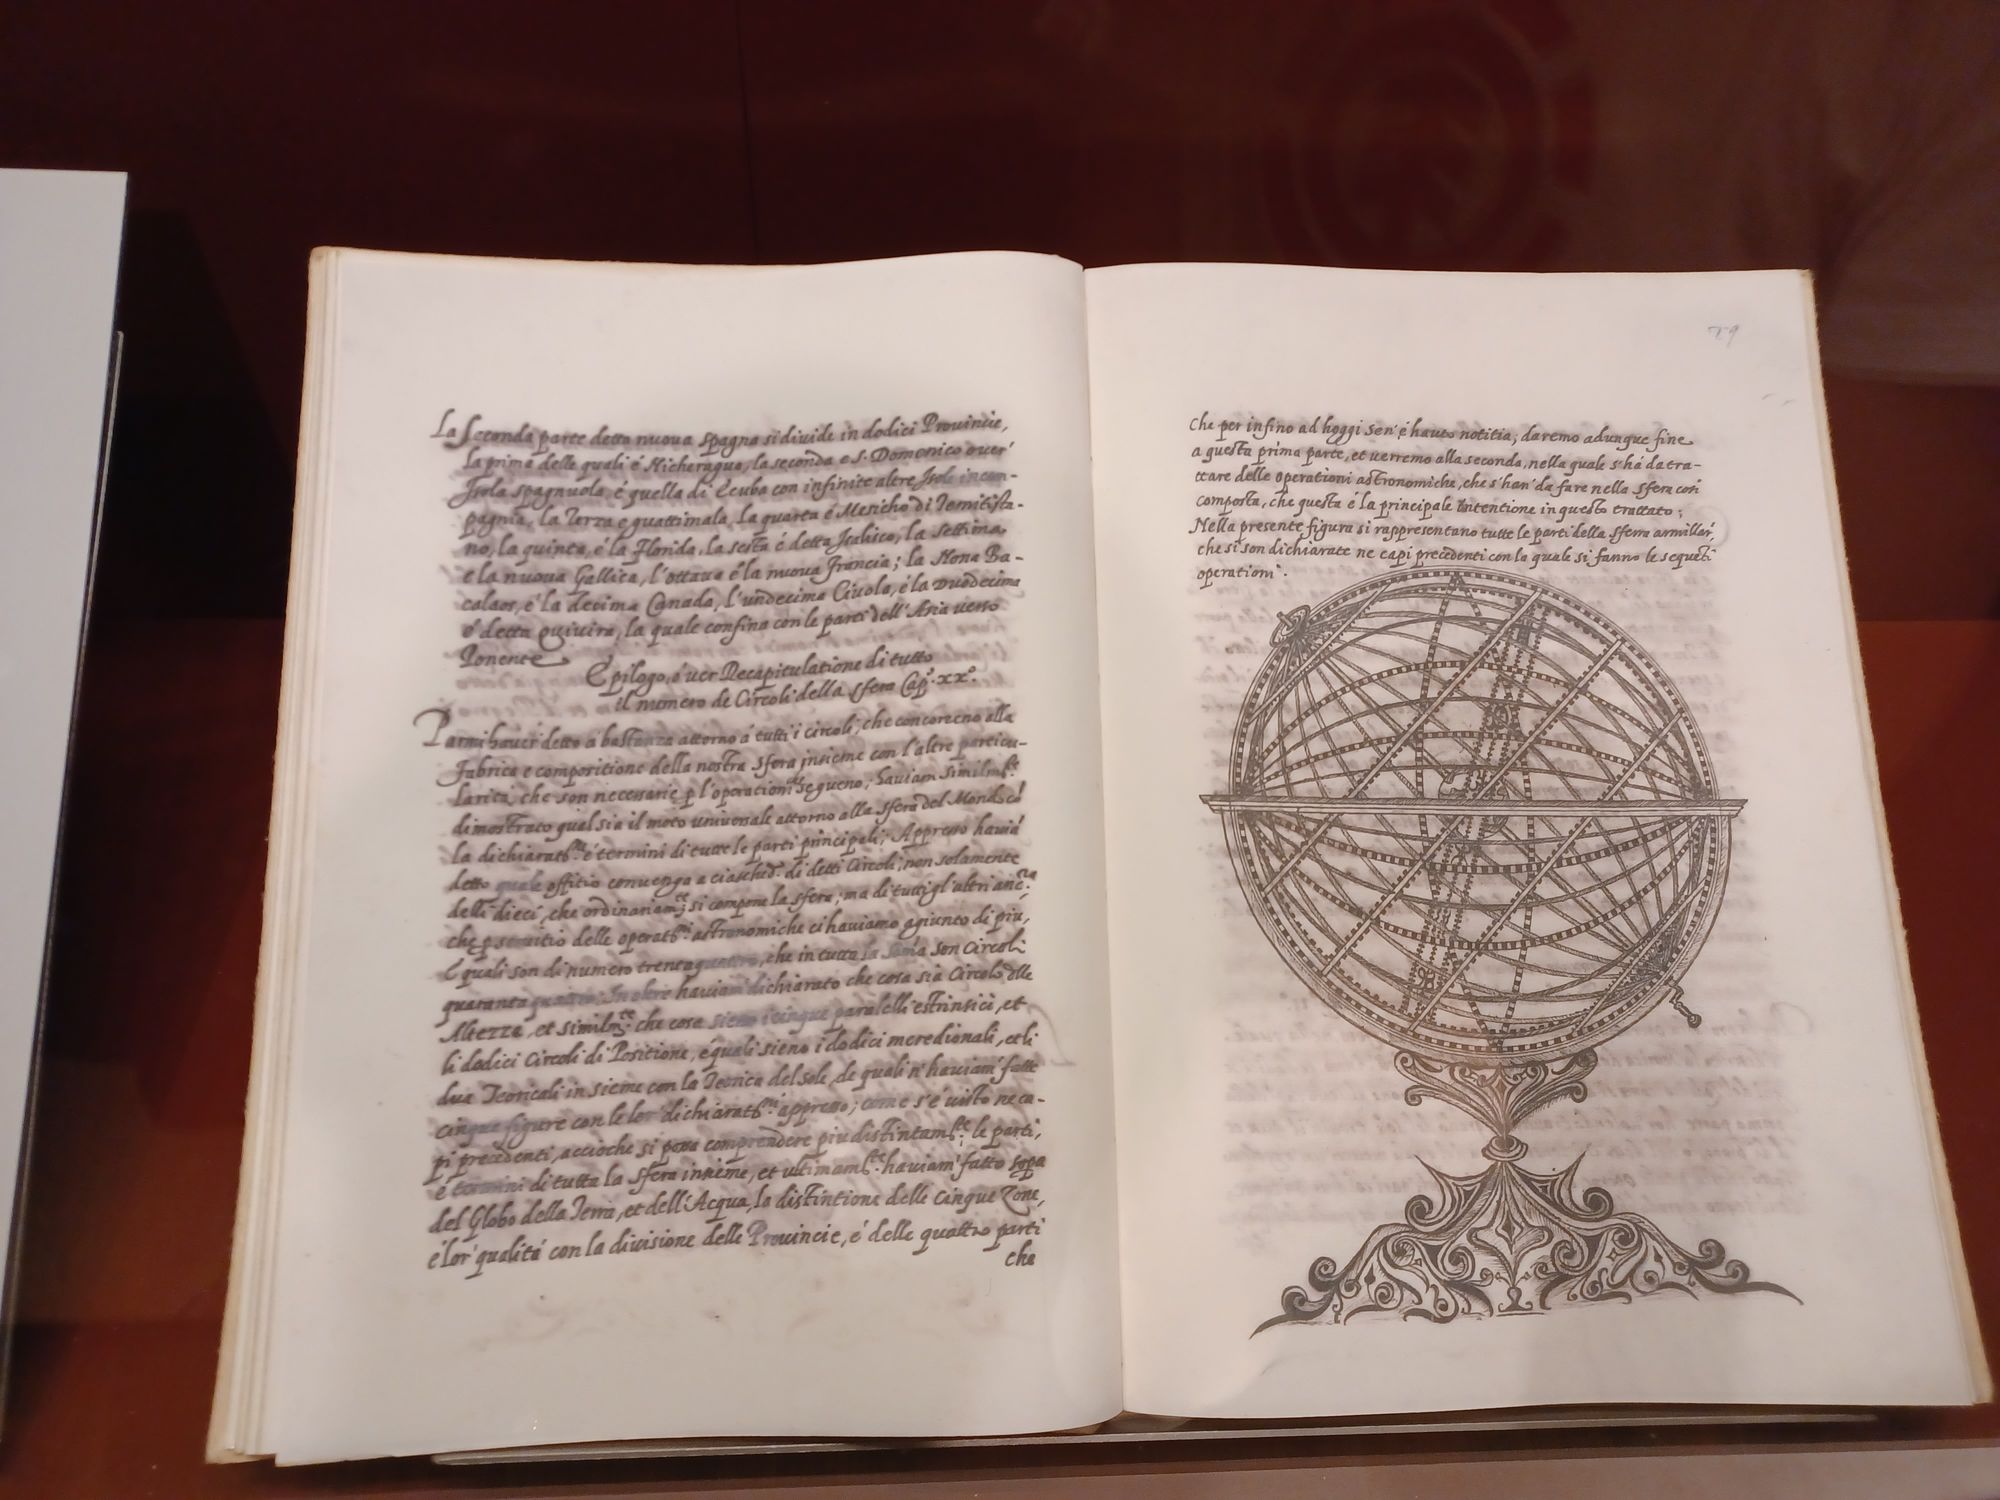 La Seconda parte detta nuova Spagna si divide in dodici Provincie,
la prima delle quali é Nicheragua, la seconda e S. Domenico over'
Isola spagnuola, é quella di Ccuba con infinite altre Isole incom-
pagnia, la Terza e guattimala, La quarta é Mesicho di Temitista-
no, la quinta, é la Florida, la sesta é detta Ixalisco, la settima,
e la nuova Gallica, l'ottava é la nuova Francia; la Nona Ba-
calaos, é la decima Canada, l'undecima Civola, é la Duodecima
é detta Quivira, la quale confina con le parti dell'Asia verso
Ponente
Epilogo, ó ver Recapitulatione di tutto
il numero de Circoli della sfera Cap.º xx.º
Parmi haver detto a bastanza attorno á tutti i circoli, che concoreno alla
fabrica e compositione della nostra sfera insieme con l'altre particu-
larità, che son necessarie p l'operationi segueno; haviam similmte.
dimostrato qual sia il moto universale attorno alla sfera del Mondo có
la dichiaratne. é termini di tutte le parti principali; Appresso haviá
detto quale offitio convenga a ciaschd.º di detti Circoli, non solamente
delli dieci, che ordinariamte. si compone la sfera; ma di tutti gl'altri anc.ra
che p servitio delle operatni. astronomiche ci haviamo agiunto di piu,
é quali son di numero trentaquattro, che in tutta la somá son Circoli
quarantaquattro. In oltre haviam dichiarato che cosa sia Circolo dlle
Altezza, et similmte. che cosa sieno i cinque paralelli estrinsici, et
li dodici Circoli di Positione, é quali sieno i dodici meredionali, et li
dua Teoricali insieme con la Teorica del sole, de quali n'haviam' fatte
cinque figure con le lor' dichiaratni. appresso; come s'é visto ne ca-
pi precedenti, accioche si possa comprendere piu distintamte. le parti,
é termini di tutta la sfera insieme, et ultimamte. haviam' fatto sopa
del Globo della Terra, et dell'Acqua, la distintione delle Cinque Zone,
é lor' qualitá con la divisione delle Provincie, é delle quattro parti
che
29
Che per infino ad hoggi sen'é hauto notitia; daremo adunque fine
a questa prima parte, et verremo alla seconda, nella quale s'há da tra-
ttare delle operationi astronomiche, che s'han' da fare nella sfera cosí
composta, che questa é la principale intentione in questo trattato;
Nella presente figura si rappresentano tutte le parti della Sfera armillar,
che si son dichiarate ne capi precedenti con la quale si fanno le sequeti
operationi.